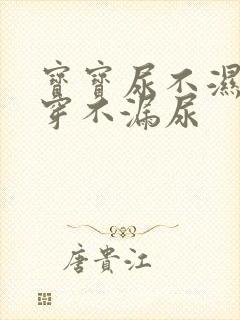 寶寶尿不濕
穿不漏尿
唐貴江